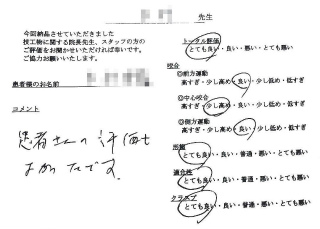 先生
今回納品させていただきました
技工物に関する院長先生、スタッフの方の
ご評価をお聞かせいただければ幸いです。
ご協力お願いいたします。
患者様のお名前
コメント
患者さんの評価も
よかったです。
トータル評価
とても良い・良い・悪い・とても悪い
咬合
◎前方運動
高すぎ・少し高め・良い・少し低め・低すぎ
◎中心咬合
高すぎ・少し高め・良い・少し低め・低すぎ
◎側方運動
高すぎ・少し高め・良い・少し低め・低すぎ
形態
とても良い・良い・普通・悪い・とても悪い
適合性
とても良い・良い・普通・悪い・とても悪い
クラスプ
とても良い・良い・普通・悪い・とても悪い